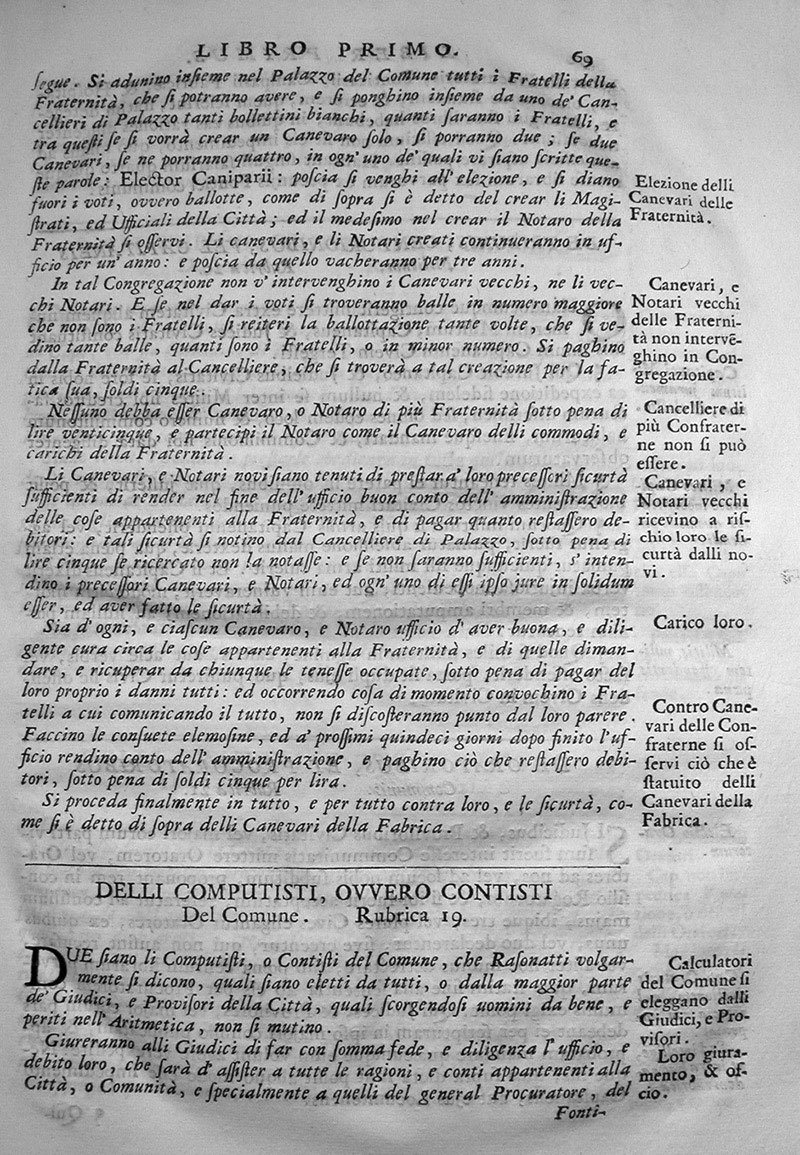 LIBRO PRIMO. 69
ſegue. Si adunino inſieme nel Palazzo del Comune tutti i Fratelli della
Fraternità, che ſi potranno avere, e ſi ponghino inſieme da uno de' Can-
cellieri di Palazzo tanti bollettini bianchi, quanti ſaranno i Fratelli, e
tra queſti ſe ſi vorrà crear un Canevaro ſolo, ſi porranno due; ſe due
Canevari, ſe ne porranno quattro, in ogn' uno de' quali vi ſiano ſcritte que-
ſte parole: Elector Caniparii: poſcia ſi venghi all' elezione, e ſi diano
fuori i voti, ovvero ballotte, come di ſopra ſi è detto del crear li Magi-
ſtrati, ed Ufficiali della Città; ed il medeſimo nel crear il Notaro della
Fraternità ſi oſſervi. Li canevari, e li Notari creati continueranno in uf-
ficio per un' anno: e poſcia da quello vacheranno per tre anni.
Elezione delli
Canevari delle
Fraternità.
In tal Congregazione non v' intervenghino i Canevari vecchi, ne li vec-
chi Notari. E ſe nel dar i voti ſi troveranno balle in numero maggiore
che non ſono i Fratelli, ſi reiteri la ballottazione tante volte, che ſi ve-
dino tante balle, quanti ſono i Fratelli, o in minor numero. Si paghino
dalla Fraternità al Cancelliere, che ſi troverà a tal creazione per la fa-
tica ſua, ſoldi cinque.
Canevari, e
Notari vecchi
delle Fraterni-
tà non intervẽ-
ghino in Con-
gregazione.
Neſſuno debba eſſer Canevaro, o Notaro di più Fraternità ſotto pena di
lire venticinque, e partecipi il Notaro come il Canevaro delli commodi, e
carichi della Fraternità.
Cancelliere di
più Confrater-
ne non ſi può
eſſere.
Li Canevari, e Notari novi ſiano tenuti di preſtar a' loro preceſſori ſicurtà
ſufficienti di render nel fine dell' ufficio buon conto dell' amminiſtrazione
delle coſe appartenenti alla Fraternità, e di pagar quanto reſtaſſero de-
bitori: e tali ſicurtà ſi notino dal Cancelliere di Palazzo, ſotto pena di
lire cinque ſe ricercato non la notaſſe: e ſe non ſaranno ſufficienti, s' inten-
dino i preceſſori Canevari, e Notari, ed ogn' uno di eſſi ipſo jure in ſolidum
eſſer, ed aver fatto le ſicurtà.
Canevari, e
Notari vecchi
ricevino a riſ-
chio loro le ſi-
curtà dalli no-
vi.
Sia d' ogni, e ciaſcun Canevaro, e Notaro ufficio d' aver buona, e dili-
gente cura circa le coſe appartenenti alla Fraternità, e di quelle diman-
dare, e ricuperar da chiunque le teneſſe occupate, ſotto pena di pagar del
loro proprio i danni tutti: ed occorrendo coſa di momento convochino i Fra-
telli a cui comunicando il tutto, non ſi diſcoſteranno punto dal loro parere.
Faccino le conſuete elemoſine, ed a' proſſimi quindeci giorni dopo finito l'uf-
ficio rendino conto dell' amminiſtrazione, e paghino ciò che reſtaſſero debi-
tori, ſotto pena di ſoldi cinque per lira.
Carico loro.
Si proceda finalmente in tutto, e per tutto contra loro, e le ſicurtà, co-
me ſi è detto di ſopra delli Canevari della Fabrica.
Contro Cane-
vari delle Con-
fraterne ſi oſ-
ſervi ciò che è
ſtatuito delli
Canevari della
Fabrica.
DELLI COMPUTISTI, OVVERO CONTISTI
Del Comune. Rubrica 19.
DUE ſiano li Computiſti, o Contiſti del Comune, che Raſonatti volgar-
mente ſi dicono, quali ſiano eletti da tutti, o dalla maggior parte
de' Giudici, e Proviſori della Città, quali ſcorgendoſi uomini da bene, e
periti nell' Aritmetica, non ſi mutino.
Calculatori
del Comune ſi
eleggano dalli
Giudici, e Pro-
viſori.
Giureranno alli Giudici di far con ſomma fede, e diligenza l' ufficio, e
debito loro, che ſarà d' aſſiſter a tutte le ragioni, e conti appartenenti alla
Città, o Comunità, e ſpecialmente a quelli del general Procuratore, del
Loro giura-
mento, & of-
cio.
Fonti-